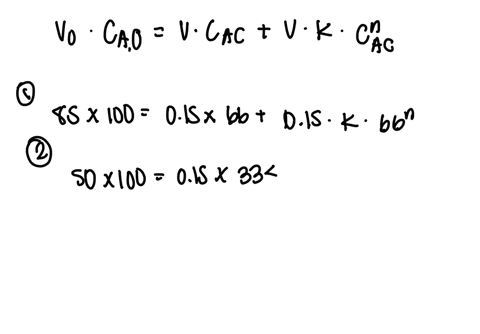 V₀ · C_A,0 = V · C_AC + V · K · Cⁿ_AC
①
85 × 100 = 0.15 × 66 + 0.15 · K · 66ⁿ
②
50 × 100 = 0.15 × 33<